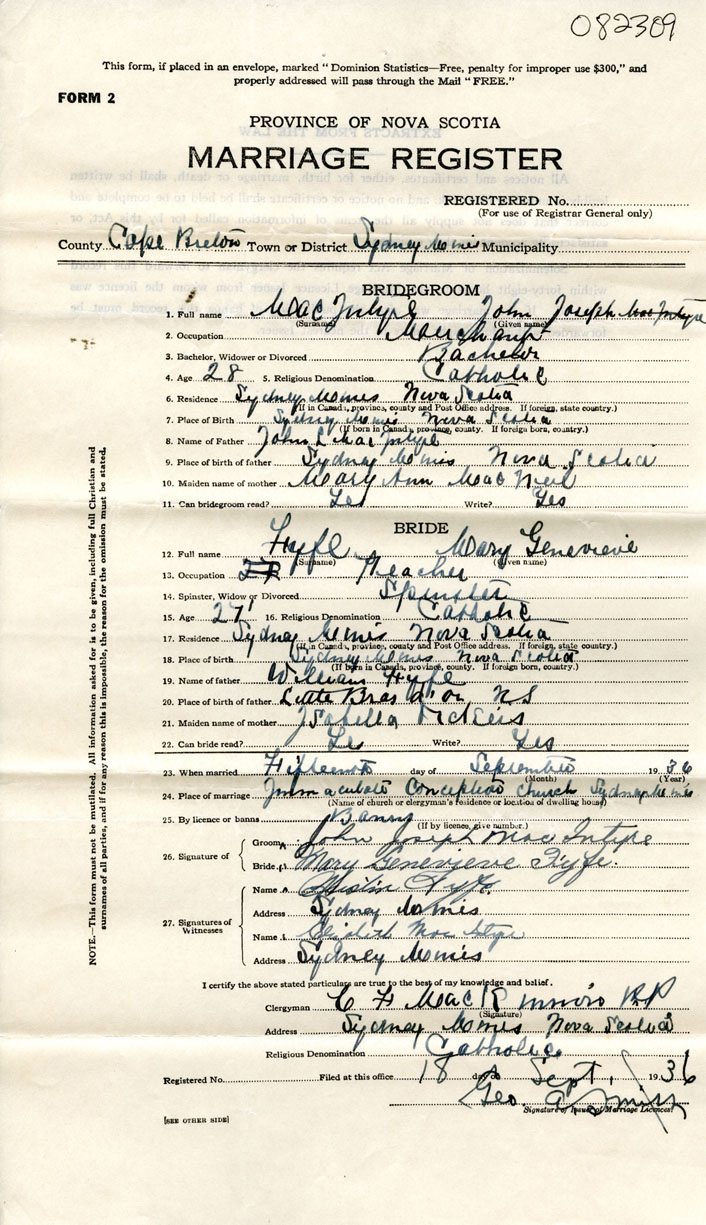 082309
This form, if placed in an envelope, marked "Dominion Statistics—Free, penalty for improper use $300," and
properly addressed will pass through the Mail "FREE."
FORM 2
PROVINCE OF NOVA SCOTIA
MARRIAGE REGISTER
REGISTERED No.
(For use of Registrar General only)
County Cape Breton Town or District Sydney Mines Municipality
BRIDEGROOM
1. Full name MacIntyre John Joseph MacIntyre
(Surname) (Given name)
2. Occupation Merchant
3. Bachelor, Widower or Divorced Bachelor
4. Age 28 5. Religious Denomination Catholic
6. Residence Sydney Mines Nova Scotia
(If in Canada, province, county and Post Office address. If foreign, state country.)
7. Place of Birth Sydney Mines Nova Scotia
(If born in Canada, province, county. If foreign born, country.)
8. Name of Father John L MacIntyre
9. Place of birth of father Sydney Mines Nova Scotia
10. Maiden name of mother Mary Ann MacNeil
11. Can bridegroom read? Yes Write? Yes
BRIDE
12. Full name Fyfe Mary Genevieve
(Surname) (Given name)
13. Occupation Teacher
14. Spinster, Widow or Divorced Spinster
15. Age 27 16. Religious Denomination Catholic
17. Residence Sydney Mines Nova Scotia
(If in Canada, province, county and Post Office address. If foreign, state country.)
18. Place of birth Sydney Mines Nova Scotia
(If born in Canada, province, county. If foreign born, country.)
19. Name of father William Fyfe
20. Place of birth of father Little Bras d'or NS
21. Maiden name of mother Isabella
22. Can bride read? Yes Write? Yes
23. When married Fifteenth day of September 1936
(Month) (Year)
24. Place of marriage Immaculate Conception church Sydney Mines
(Name of church or clergyman's residence or location of dwelling house)
25. By licence or banns Banns
(If by licence, give number.)
26. Signature of
Groom John Joseph MacIntyre
Bride Mary Genevieve Fyfe.
27. Signatures of Witnesses
Name Fyfe
Address Sydney Mines
Name Elizabeth MacIntyre
Address Sydney Mines
I certify the above stated particulars are true to the best of my knowledge and belief.
Clergyman C F MacKinnon P.P
(Signature)
Address Sydney Mines Nova Scotia
Religious Denomination Catholic
Registered No. Filed at this office 18 day of Sept. 1936
Geo. A Smith
Signature of Issuer of Marriage Licences
[SEE OTHER SIDE]
NOTE.—This form must not be mutilated. All information asked for is to be given, including full Christian and
surnames of all parties, and if for any reason this is impossible, the reason for the omission must be stated.